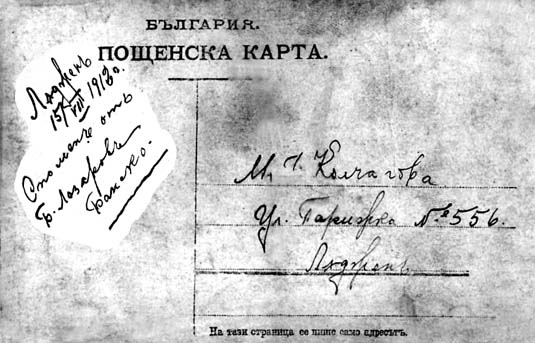 БЪЛГАРИЯ.
ПОЩЕНСКА КАРТА.
Лъджене
15/VIII 1913 г.
Споменъ отъ
Б. Лазаровъ
Банско.
М. г. Колчагова
Ул. Парижка № 556.
Лъджене
На тази страница се пише само адресътъ.